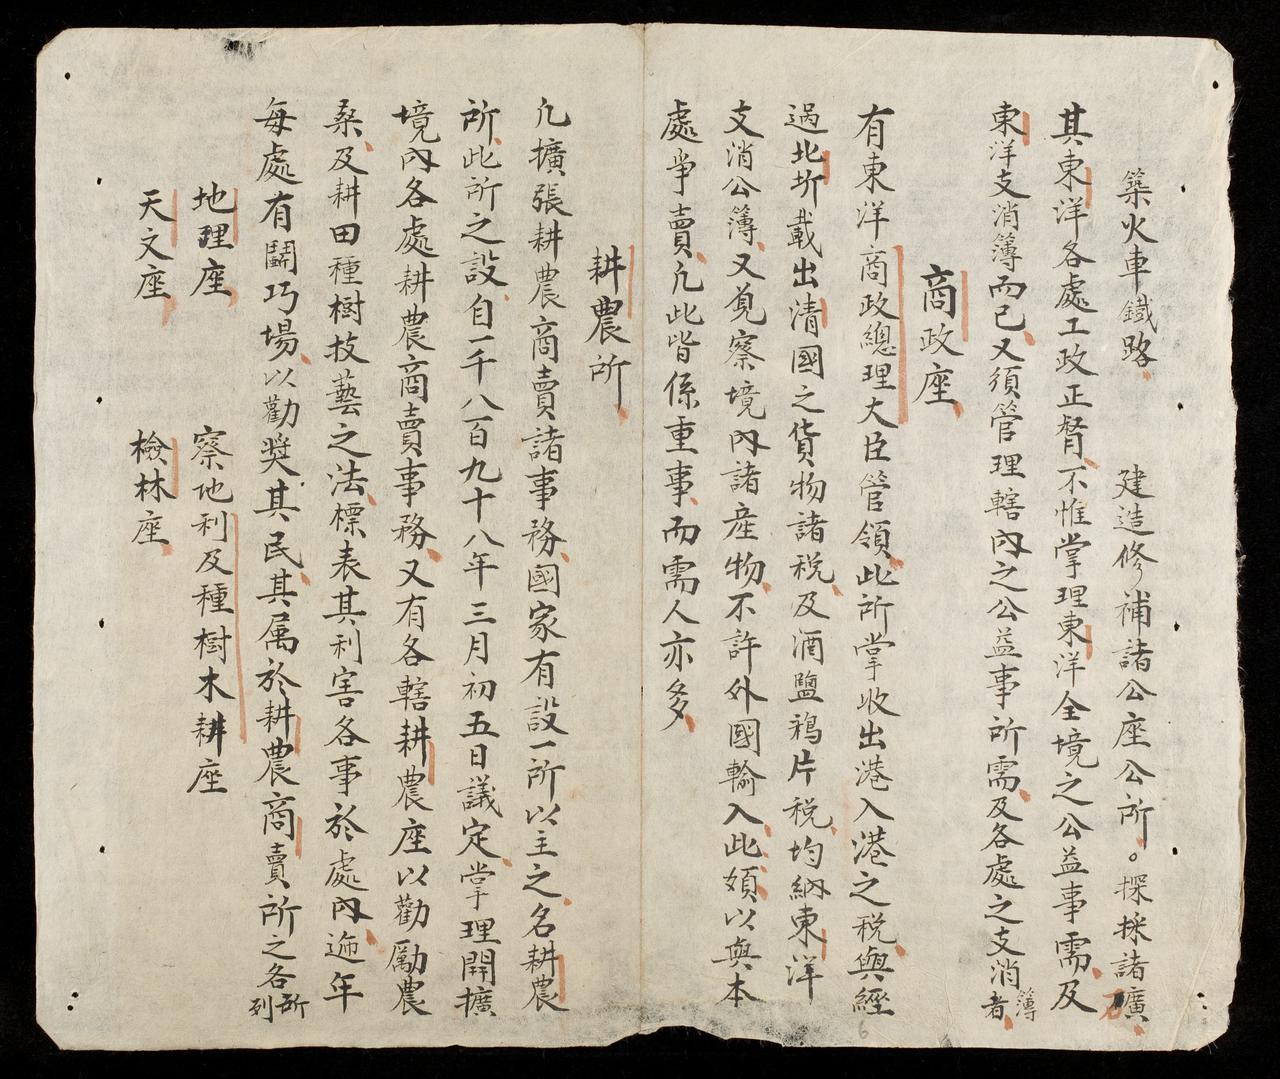 築火車鐵路 建造修補諸公座公所。探採諸礦
其東洋各處工政正督不惟掌理東洋全境之公益事需及
東洋支消簿而已又須管理轄內之公益事所需及各處之支消簿者
商政座
有東洋商政總理大臣管領此所掌收出港入港之稅與經
過北圻載出清國之貨物諸稅及酒鹽鴉片稅均納東洋
支消公簿又覓察境內諸產物不許外國輸入此類以與本
處爭賣凢此皆係重事而需人亦多
耕農所
凢擴張耕農商賣諸事務國家有設一所以主之名耕農
所此所之設自一千八百九十八年三月初五日議定掌理開擴
境內各處耕農商賣事務又有各轄耕農座以勸勵農
桑及耕田種樹技藝之法標表其利害各事於處內迤年
每處有鬪巧場以勸奬其民其属於耕農商賣所之各所列
地理座 察地利及種樹木耕座
天文座 檢林座
6